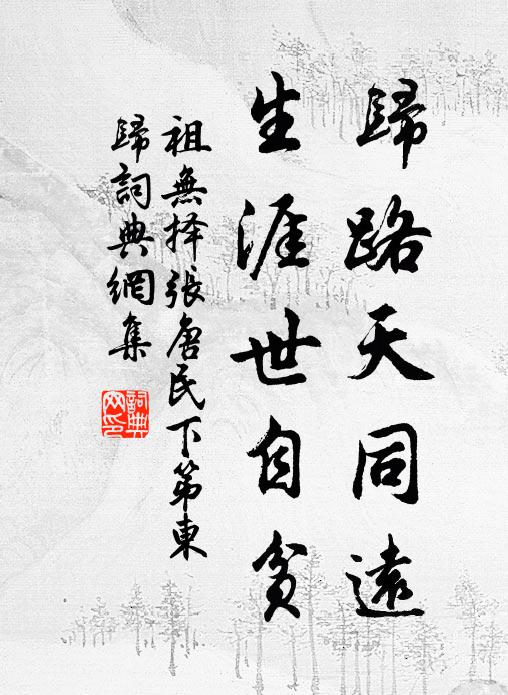 歸路天同遠
生涯世自貧
祖無择張唐民下第東
歸詞典網集
詞典網印